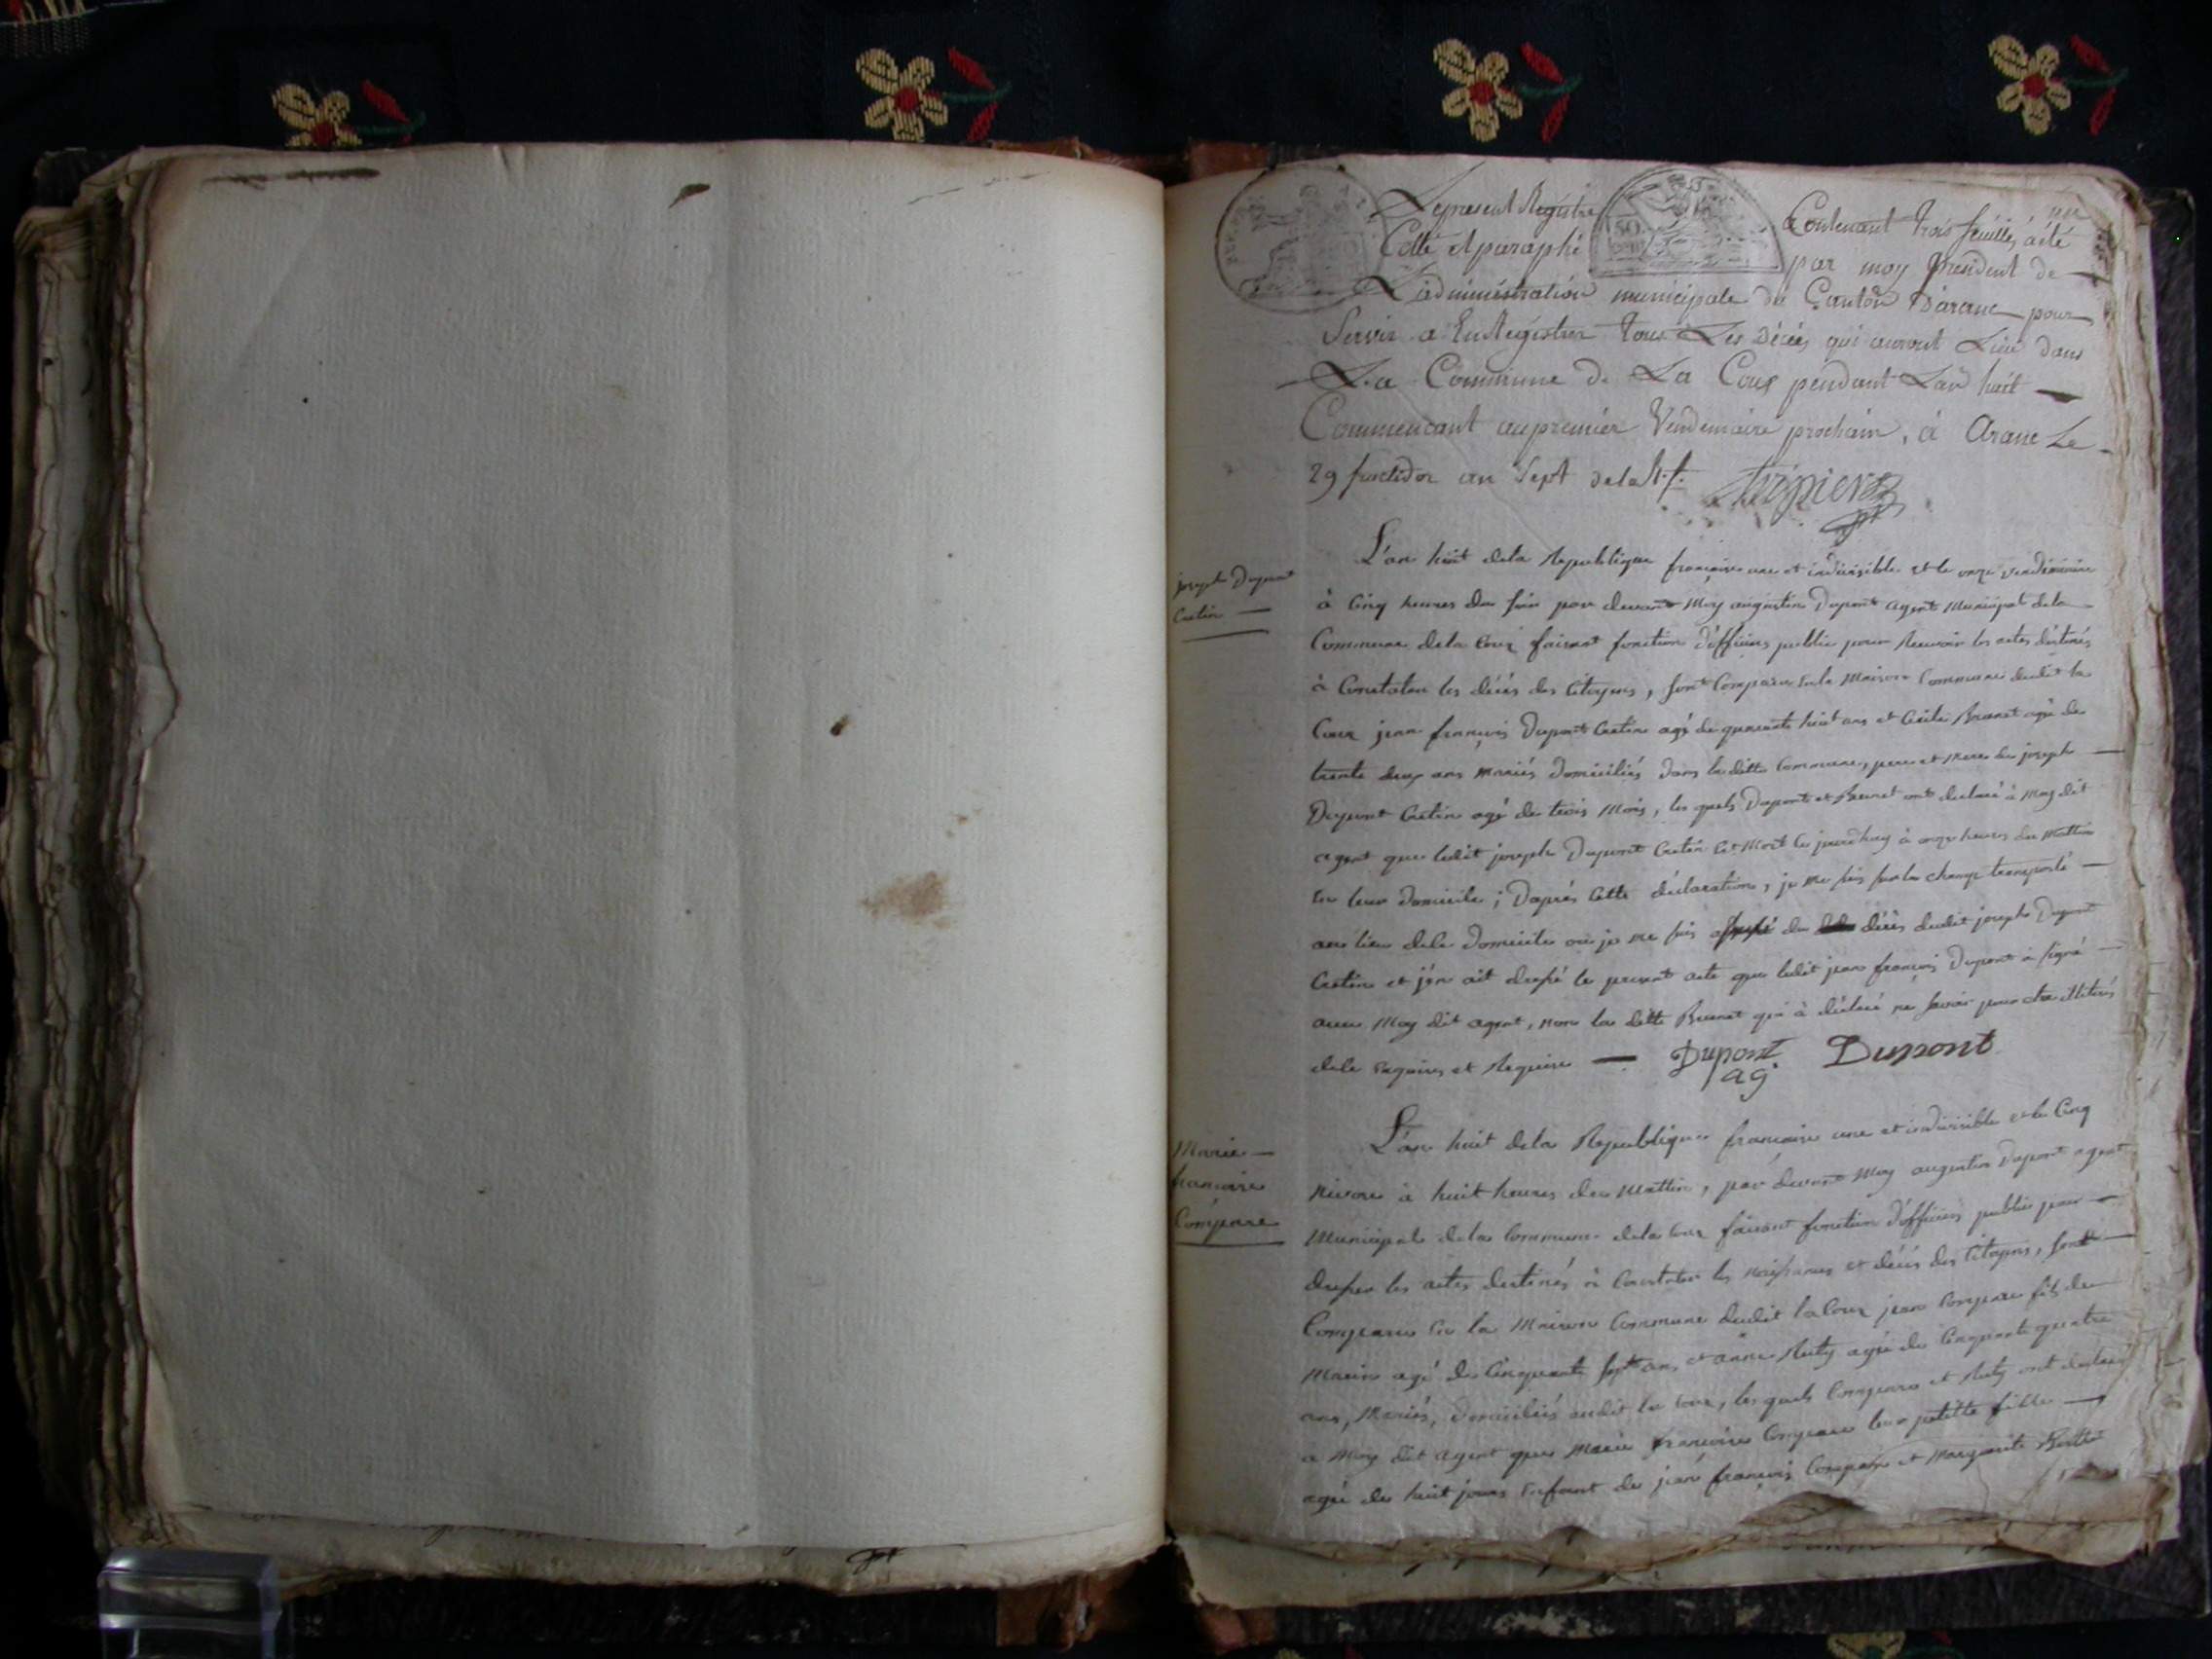 un
Le present Registre Contenant trois feuilles, a été
Cotté et paraphé par moy president de
L'administration municipale du Canton D'aranc pour
Servir a EnRegistrer tous Les Décés qui auront Lieu dans
La Commune de La Coux pendant L'an huit
Commencant au premier Vendemiaire prochain, à Aranc Le
29 fructidor an Sept de la R. f.
50
joseph Dupont
Cretin
L'an huit de la Republique francaise une et indivisible et le onze vendémiaire
à Cinq heures du soir par devant Moy augustin Dupont agent Municipal de la
Commune de la Coux faisant fonction d'officier public pour Recevoir les actes déstinés
à Constater les décés des Citoyens, sont Comparu en la Maison Commune dudit la
Coux jean françois Dupont Cretin agé de quarante huit ans et Cécile Brunet agée de
trente deux ans mariés domiciliés dans la ditte Commune, pere et Mere de joseph
Dupont Cretin agé de trois Mois, les quels Dupont et Brunet ont declaré à Moy dit
agent que ledit joseph Dupont Cretin Est Mort ce jourdhuy à onze heures du Mattin
en leur domicile ; D'aprés Cette déclaration, je me suis sur le champ transporté
au lieu de le domicile ou je me suis assuré du décés dudit joseph Dupont
Cretin et j'en ait dressé le present acte que ledit jean françois Dupont à signé
avec Moy dit agent, non la ditte Brunet qui à déclaré ne savoir pour etre illiterés
de le enquise et Requise — Dupont Dupont
ag.
Marie
francoise
Compare
L'an huit de la Republique francaise une et indivisible et le Cinq
nivose à huit heures du Mattin, par devant Moy augustin Dupont agent
Municipal de la Commune de la Coux faisant fonction d'officier public pour
dresser les actes destinés à Constater les naissances et décés des Citoyens, sont
Comparu en la Maison Commune dudit la Coux jean Compare fils de
Marin agé de Cinquante sept ans et anne Ruty agée de Cinquante quatre
ans, Mariés, domiciliés audit la Coux, les quels Compare et Ruty ont declaré
a Moy dit agent que Marie francoise Compare leur petitte fille
agée de huit jours Enfant de jean françois Compare et Marguerite